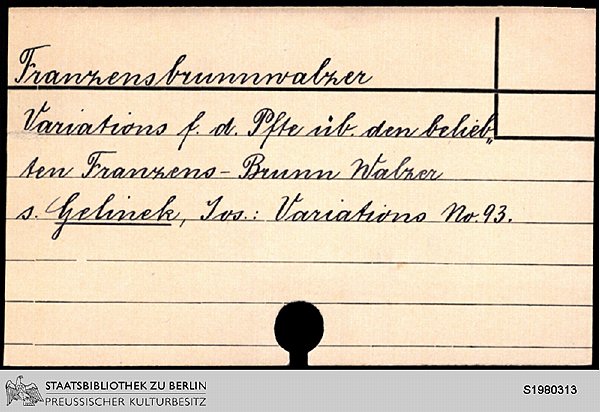 Franzensbrunnwalzer
Variations f. d. Pfte üb. den belieb„
ten Franzens-Brunn Walzer
s. Gelinek, Jos.: Variations No. 93.
STAATSBIBLIOTHEK ZU BERLIN
PREUSSISCHER KULTURBESITZ
S1980313